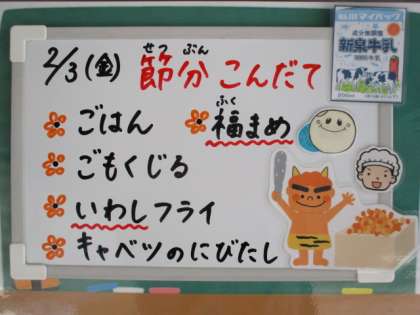 2/3(金) 節分 こんだて
せつ ぶん
ごはん
福まめ
ふく
ごもくじる
いわしフライ
キャベツのにびたし
成分無調整
新泉牛乳